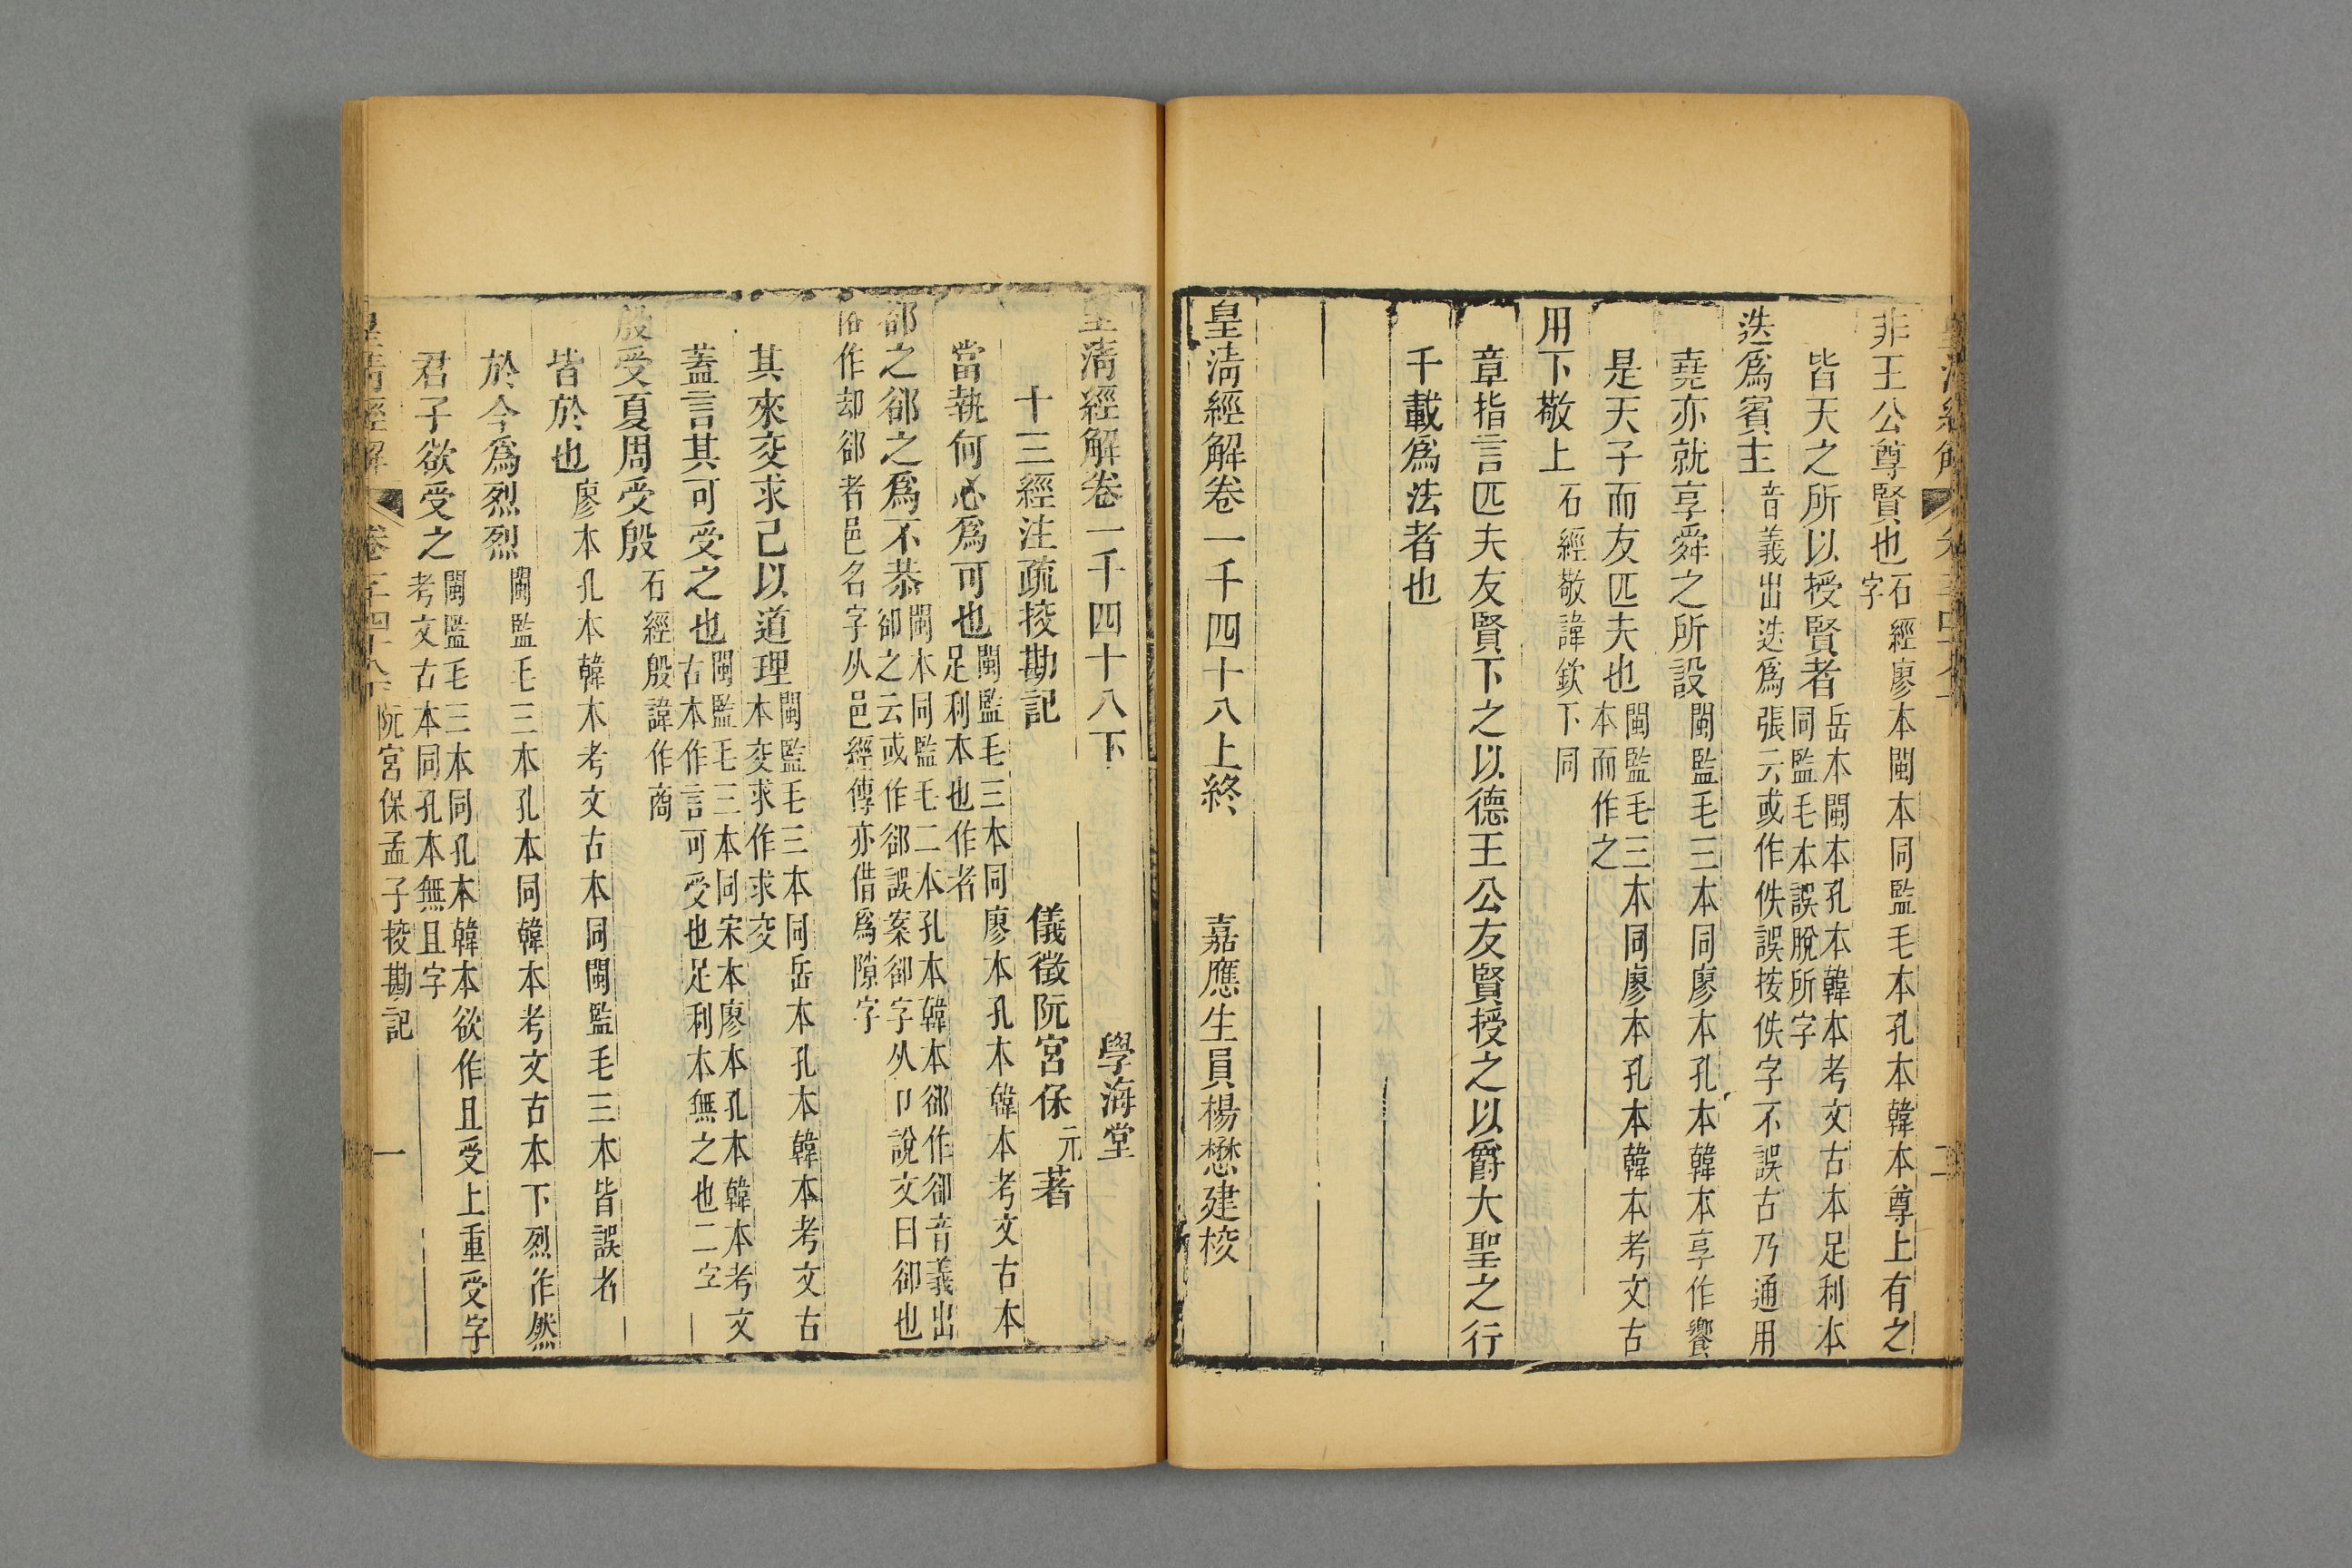 非王公尊賢也石經廖本閩本同監毛本孔本韓本尊上有之字
皆天之所以授賢者岳本閩本孔本韓本考文古本足利本同監毛本誤脫所字
迭爲賓主音義出迭爲張云或作佚誤按佚字不誤古乃通用
堯亦就享舜之所設閩監毛三本同廖本孔本韓本享作饗
是天子而友匹夫也閩監毛三本同廖本孔本韓本考文古本而作之
用下敬上石經敬諱欽下同
章指言匹夫友賢下之以德王公友賢授之以爵大聖之行
千載爲法者也
皇淸經解卷一千四十八上終 嘉應生員楊懋建校
皇淸經解卷一千四十八下 學海堂
十三經注疏挍勘記 儀徵阮宮保元著
當執何心爲可也閩監毛三本同廖本孔本韓本考文古本足利本也作者
郤之郤之爲不恭閩本同監毛二本孔本韓本郤作卻音義出卻之云或作郤誤案卻字从卩說文曰卻也
俗作却郤者邑名字从邑經傳亦借爲隙字
其來交求己以道理閩監毛三本同岳本孔本韓本考文古本交求作求交
蓋言其可受之也閩監毛三本同宋本廖本孔本韓本考文古本作言可受也足利本無之也二字
殷受夏周受殷石經殷諱作商
皆於也廖本孔本韓本考文古本同閩監毛三本皆誤者
於今爲烈烈閩監毛三本孔本同韓本考文古本下烈作然
君子欲受之閩監毛三本同孔本韓本欲作且受上重受字考文古本同孔本無且字
皇淸經解 卷一千四十八下 阮宮保孟子挍勘記 一